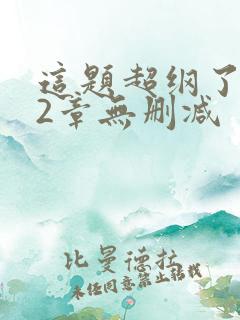 這題超纲了
2章無删减
比曼德拉
未经同意禁止转载